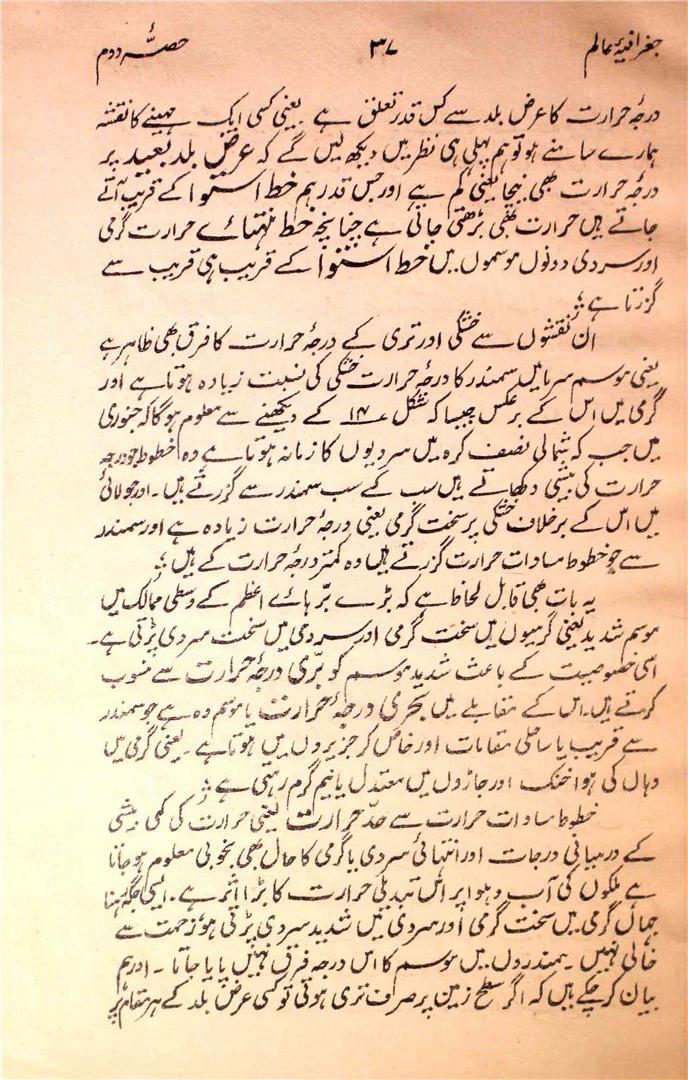 جغرافیۂ عالم ۳۷ حصۂ دوم
درجۂ حرارت کا عرض بلد سے کس قدر تعلق ہے یعنی کسی ایک مہینے کا نقشہ
ہمارے سامنے ہو تو ہم پہلی ہی نظر میں دیکھ لیں گے کہ عرض بلد بعید پر
درجۂ حرارت بھی نیچا یعنی کم ہے اور جس قدر ہم خط استوا کے قریب آتے
جاتے ہیں حرارت بھی بڑھتی جاتی ہے چنانچہ خط منتہائے حرارت گرمی
اور سردی دونوں موسموں میں خط استوا کے قریب ہی قریب سے
گزرتا ہے؛
ان نقشوں سے خشکی اور تری کے درجۂ حرارت کا فرق بھی ظاہر ہے
یعنی موسم سرما میں سمندر کا درجۂ حرارت خشکی کی نسبت زیادہ ہوتا ہے اور
گرمی میں اس کے برعکس جیسا کہ شکل ۱۴ کے دیکھنے سے معلوم ہوگا کہ جنوری
میں جب کہ شمالی نصف کرہ میں سردیوں کا زمانہ ہوتا ہے وہ خطوط جو درجہ
حرارت کی بیشی دکھاتے ہیں سب کے سب سمندر سے گزرتے ہیں۔ اور جولائی
میں اس کے برخلاف خشکی پر سخت گرمی یعنی درجۂ حرارت زیادہ ہے اور سمندر
سے جو خطوط مساوات حرارت گزرتے ہیں وہ کمتر درجۂ حرارت کے ہیں؛
یہ بات بھی قابل لحاظ ہے کہ بڑے برّ ہائے اعظم کے وسطی ممالک میں
موسم شدید یعنی گرمیوں میں سخت گرمی اور سردی میں سخت سردی پڑتی ہے۔
اسی خصوصیت کے باعث شدید موسم کو برّی درجۂ حرارت سے منسوب
کرتے ہیں۔ اس کے مقابلے میں بحری درجۂ حرارت یا موسم وہ ہے جو سمندر
سے قریب یا ساحلی مقامات اور خاص کر جزیروں میں ہوتا ہے۔ یعنی گرمی میں
وہاں کی ہوا خنک اور جاڑوں میں معتدل یا نیم گرم رہتی ہے؛
خطوط مساوات حرارت سے حدّ حرارت یعنی حرارت کی کمی بیشی
کے درمیانی درجات اور انتہائی سردی یا گرمی کا حال بھی بخوبی معلوم ہو جاتا
ہے ملکوں کی آب و ہوا پر اس تبدیلی حرارت کا بڑا اثر ہے۔ ایسی جگہ رہنا
جہاں گرمی میں سخت گرمی اور سردی میں شدید سردی پڑتی ہو زحمت سے
خالی نہیں۔ سمندروں میں موسم کا اس درجہ فرق نہیں پایا جاتا۔ اور ہم
بیان کر چکے ہیں کہ اگر سطح زمین پر صرف تری ہوتی تو کسی عرض بلد کے ہر مقام پر